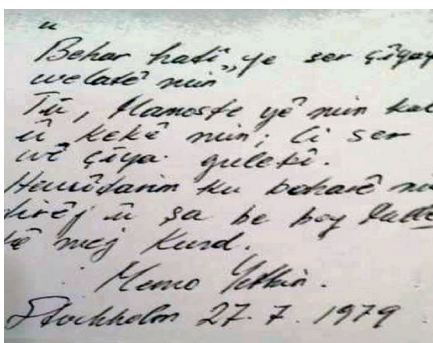 "
Behar hatî„ ye ser çîyay
welatê min
Tû, Mamoste yê min kal
û kekê min; li ser
wê çîya gulekî.
Hêvîdarim ku beharê
dirêj û şa be boy
tê mej Kurd.
Memo Yetkin.
Stockholm 27. 7. 1979